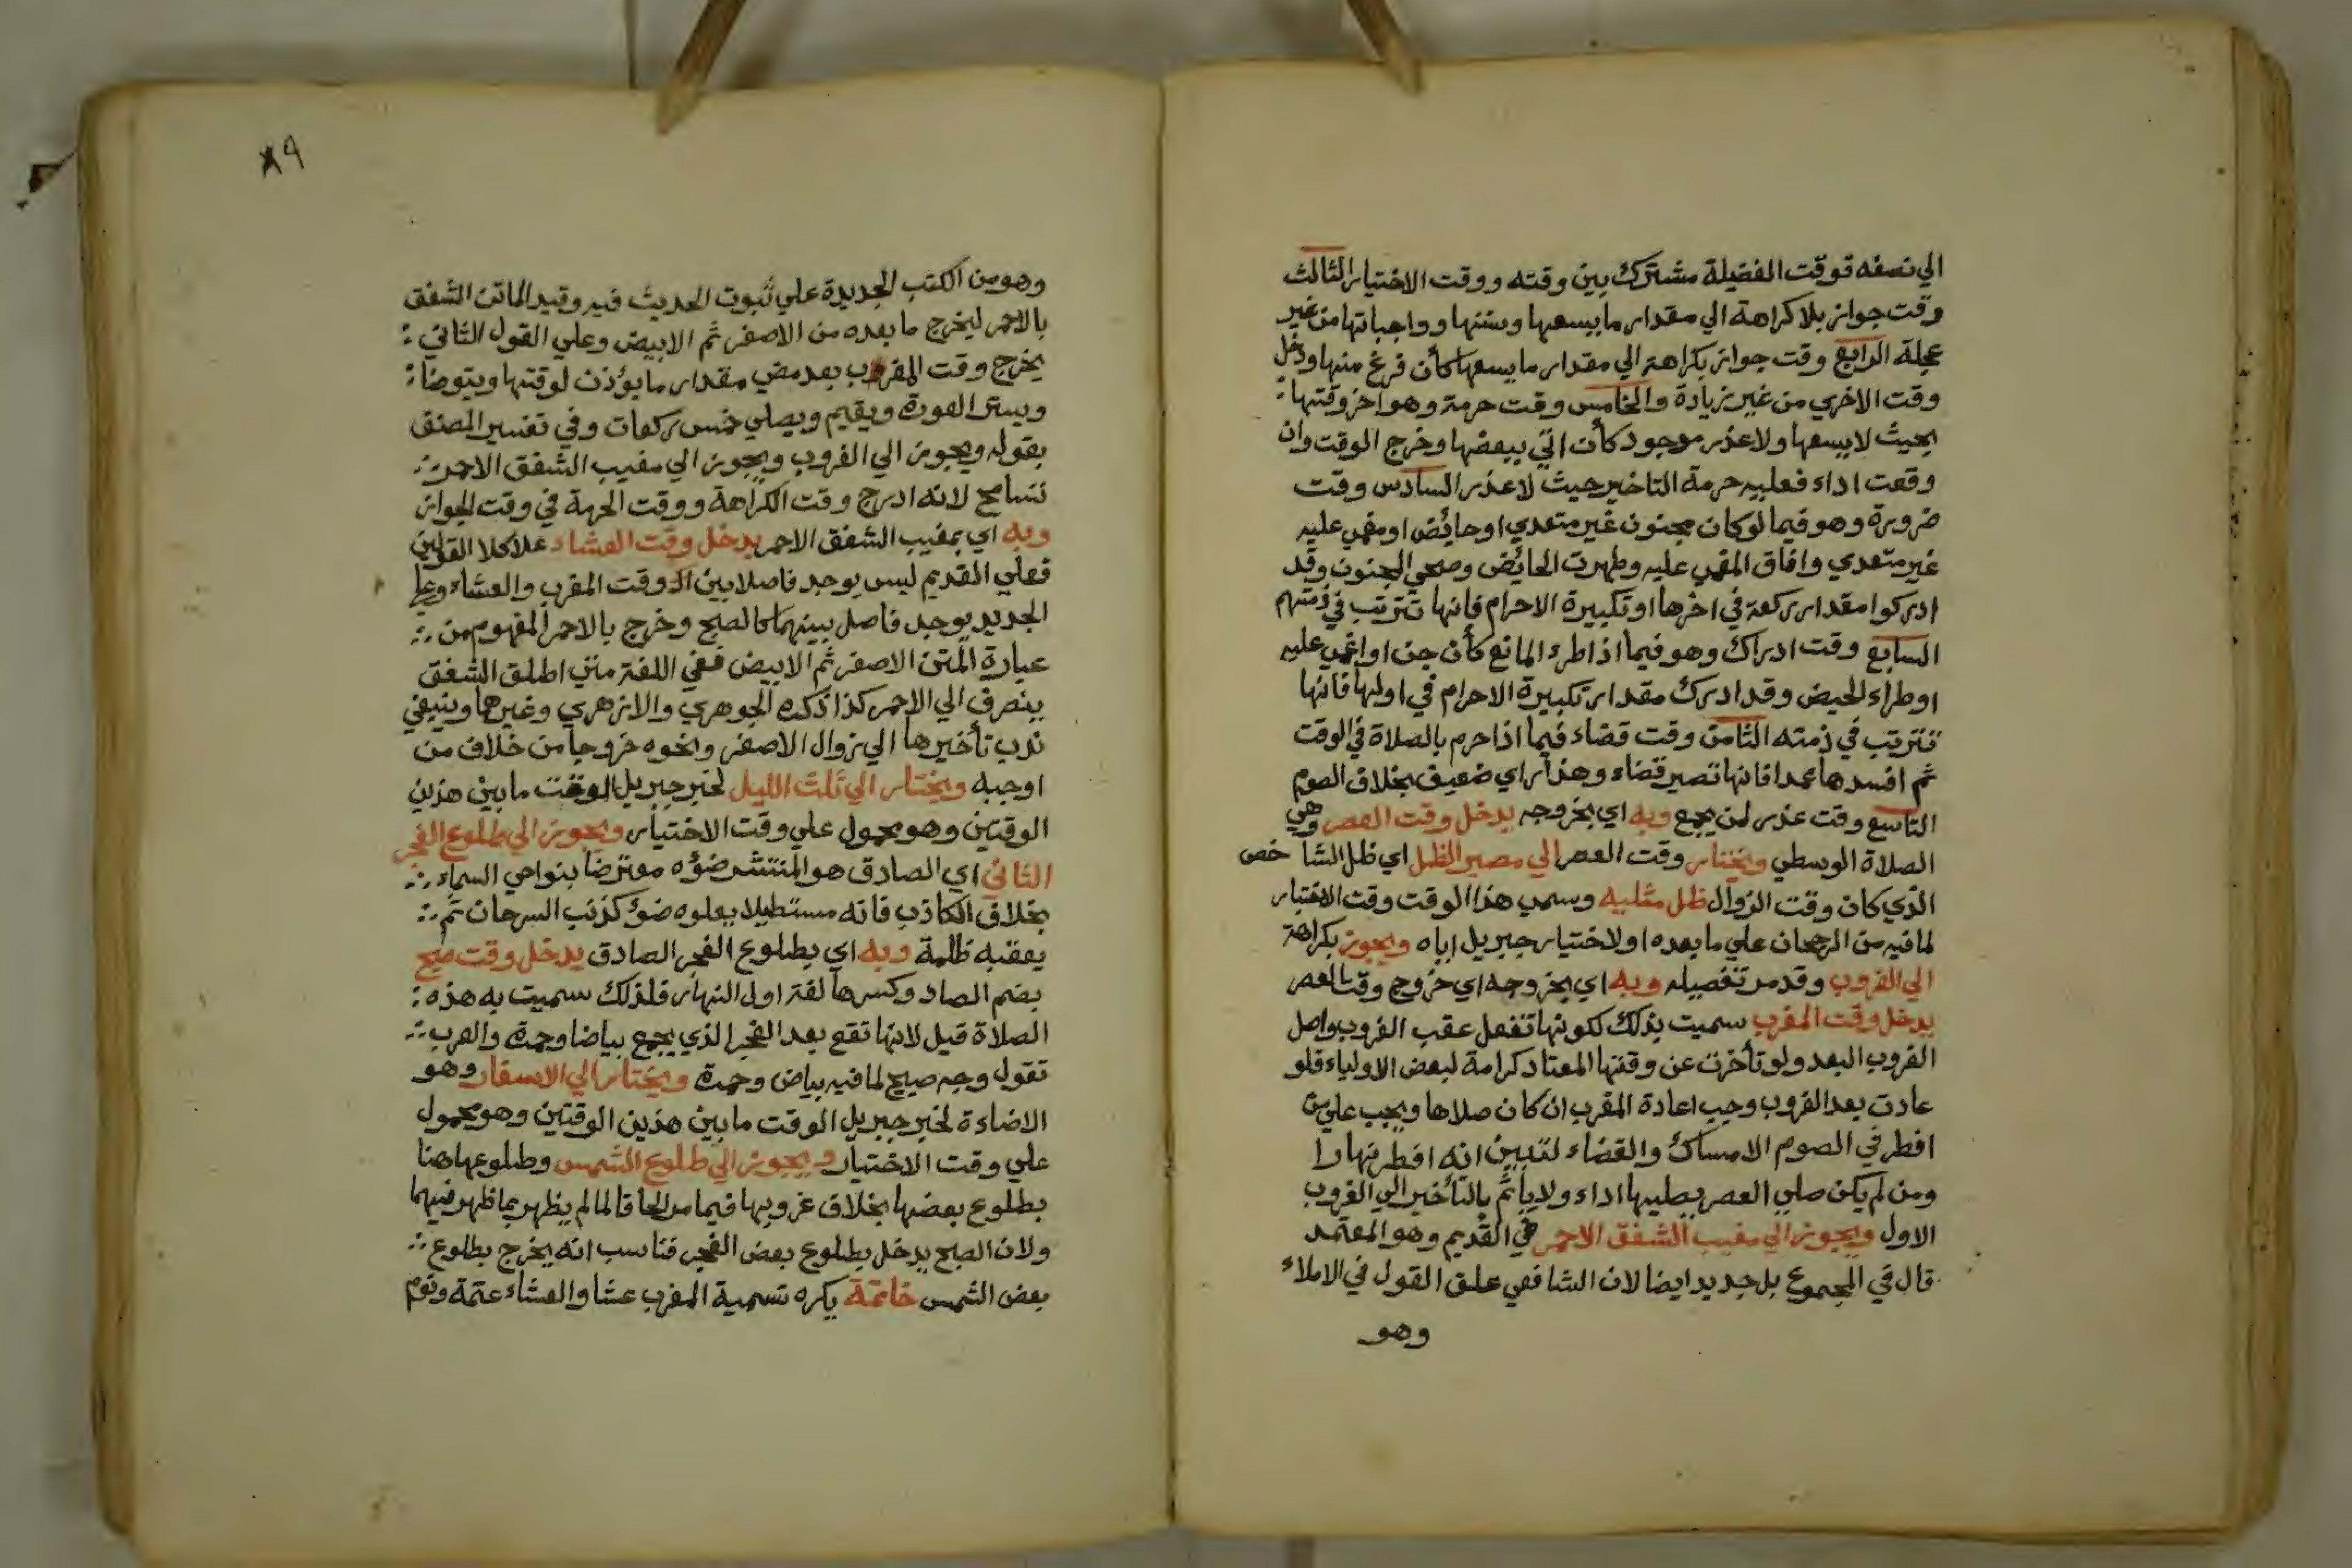 الي نصفه فوقت الفضيلة مشترك بين وقته ووقت الاختيار الثالث
وقت جواز بلا كراهة الي مقدار ما يسعها وسننها وواجباتها من غير
عجلة الرابع وقت جواز بكراهة الي مقدار ما يسعها كأن فرغ منها ودخل
وقت الاخري من غير زيادة والخامس وقت حرمة وهو اخر وقتها
بحيث لا يسعها ولا عذر موجود كأن اتي ببعضها وخرج الوقت وان
وقعت اداء فعليه حرمة التاخير حيث لا عذر السادس وقت
ضرورة وهو فيما لو كان مجنون غير متعدي او حايض او مغمي عليه
غير متعدي وافاق المغمي عليه وطهرت الحائض وصحي المجنون وقد
ادركوا مقدار ركعة في اخرها او تكبيرة الاحرام فانها تترتب في ذمتهم
السابع وقت ادراك وهو فيما اذا طرء المانع كأن جن او اغمي عليه
او طراء الحيض وقد ادرك مقدار تكبيرة الاحرام في اولها فانها
تترتب في ذمته الثامن وقت قضاء فيما اذا حرم بالصلاة في الوقت
ثم افسدها عمدا فانها تصير قضاء وهذا راي ضعيف بخلاف الصوم
التاسع وقت عذر لمن يجمع وبه اي بخروجه يدخل وقت العصر وهي
الصلاة الوسطي ويختار وقت العصر الي مصير الظل اي ظل الشا خص
الذي كان وقت الزوال ظل مثليه وسمي هذا الوقت وقت الاختيار
لما فيه من الرجحان علي ما بعده او لاختيار جبريل اياه ويجوز بكراهة
الي الغروب وقد مر تفصيله وبه اي بخروجه اي خروج وقت العصر
يدخل وقت المغرب سميت بذلك لكونها تفعل عقب الغروب واصل
الغروب البعد ولو تأخرت عن وقتها المعتاد كرامة لبعض الاولياء فلو
عادت بعد الغروب وجب اعادة المغرب ان كان صلاها ويجب علي من
افطر في الصوم الامساك والقضاء لتبين انه افطر نهارا
ومن لم يكن صلي العصر يصليها اداء ولا يأثم بالتأخير الي الغروب
الاول ويجوز الي مغيب الشفق الاحمر في القديم وهو المعتمد
قال في المجموع بل جديد ايضا لان الشافعي علق القول في الاملاء
وهو
٨٩
وهو من الكتب الجديدة علي ثبوت الحديث فيه وقيد الماتن الشفق
بالاحمر ليخرج ما بعده من الاصفر ثم الابيض وعلي القول الثاني
يخرج وقت المغرب بعد مضي مقدار ما يؤذن لوقتها ويتوضا
ويستر العورة ويقيم ويصلي خمس ركعات وفي تفسير المصنف
بقوله ويجوز الي الغروب ويجوز الي مغيب الشفق الاحمر
تسامح لانه ادرج وقت الكراهة ووقت الحرمة في وقت الجواز
وبه اي بمغيب الشفق الاحمر يدخل وقت العشاء علا كلا القولين
فعلي القديم ليس يوجد فاصلا بين وقت المغرب والعشاء وعلي
الجديد يوجد فاصل بينهما كالصبح وخرج بالاحمر المفهوم من
عبارة المتن الاصفر ثم الابيض ففي اللغة متي اطلق الشفق
ينصرف الي الاحمر كذا ذكره الجوهري والازهري وغيرهما وينبغي
ندب تأخيرها الي زوال الاصفر ونحوه خروجا من خلاف من
اوجبه ويختار الي ثلث الليل لخبر جبريل الوقت ما بين هذين
الوقتين وهو محمول علي وقت الاختيار ويجوز الي طلوع الفجر
الثاني اي الصادق هو المنتشر ضوؤه معترضا بنواحي السماء
بخلاف الكاذب فانه مستطيلا يعلوه ضوء كذنب السرحان ثم
يعقبه ظلمة وبه اي بطلوع الفجر الصادق يدخل وقت صبح
بضم الصاد وكسرها لغة اول النهار فلذلك سميت به هذه
الصلاة قيل لانها تقع بعد الفجر الذي يجمع بياضا وحمرة والعرب
تقول وجه صبيح لما فيه بياض وحمرة ويختار الي الاسفار وهو
الاضاءة لخبر جبريل الوقت ما بين هذين الوقتين وهو محمول
علي وقت الاختيار ويجوز الي طلوع الشمس وطلوعها هنا
بطلوع بعضها بخلاف غروبها فيما مر الحاقا لما لم يظهر بما ظهر فيهما
ولان الصبح يدخل بطلوع بعض الفجر فناسب انه يخرج بطلوع
بعض الشمس خاتمة يكره تسمية المغرب عشا والعشاء عتمة ونوم